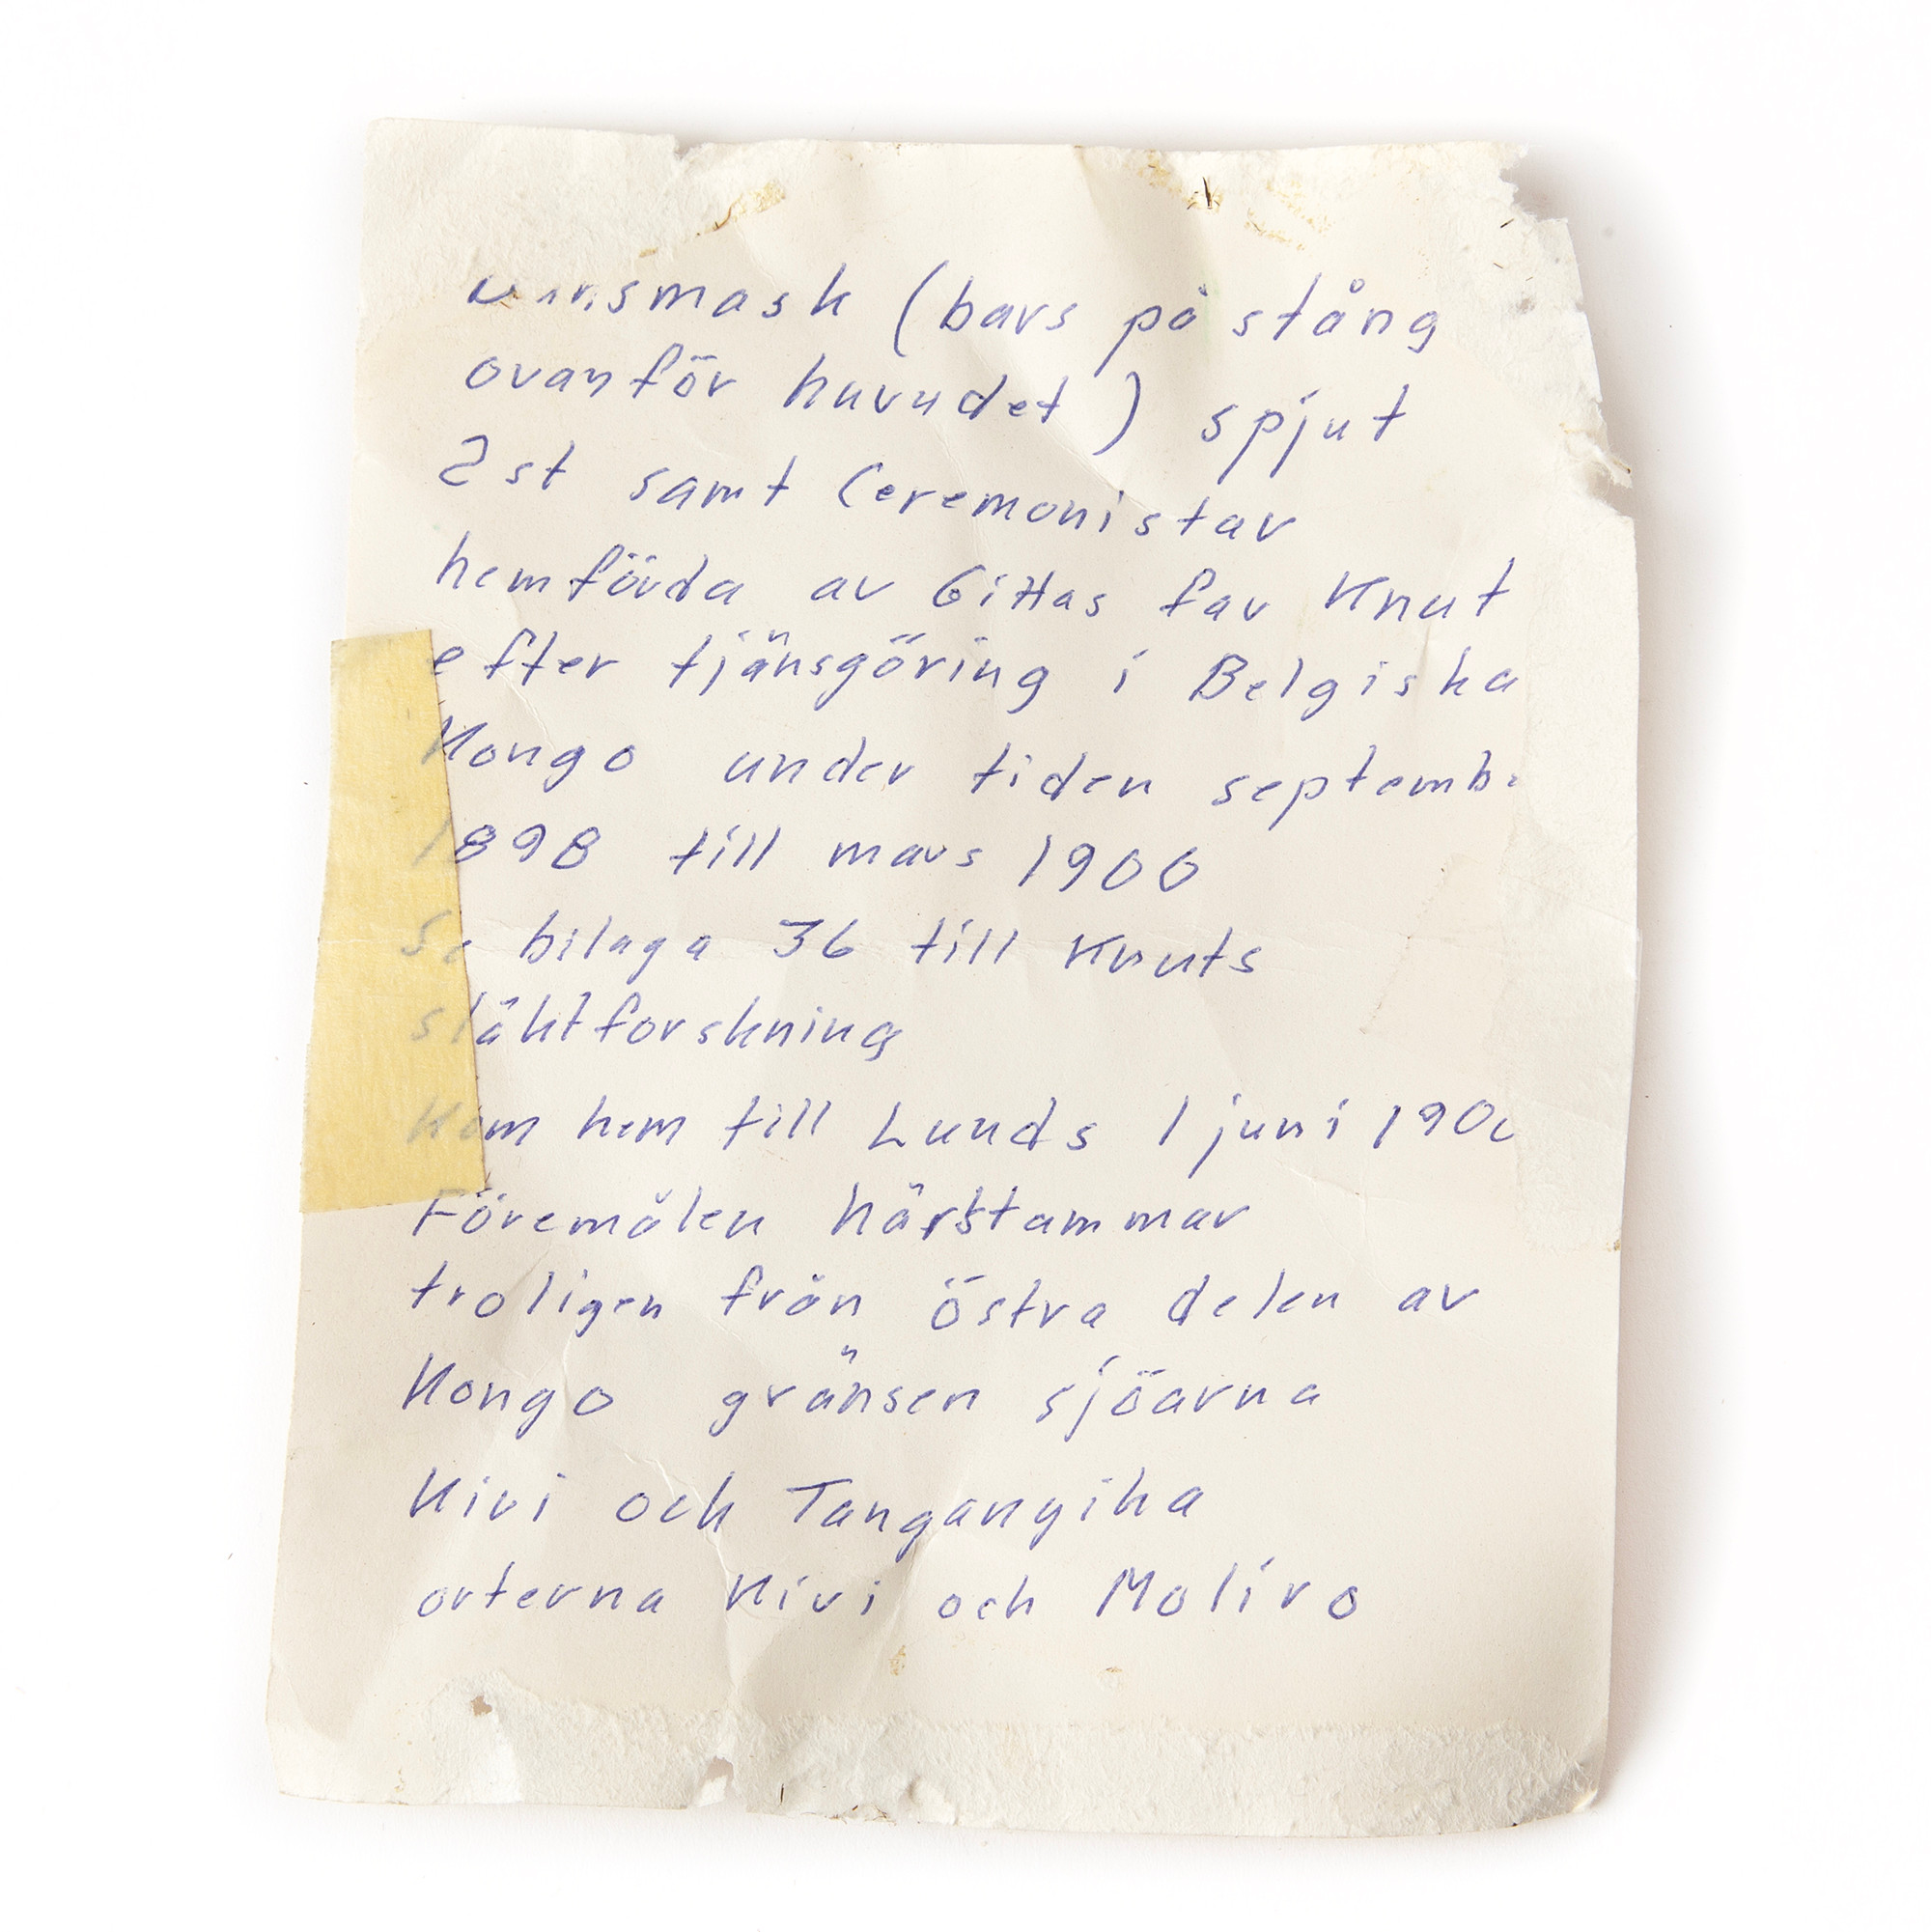 (bars på stång
ovanför huvudet) spjut
2st samt Ceremonistav
hemförda av Gittas far Knut
efter tjänsgöring i Belgiska
Kongo under tiden
1898 till mars 1900
Se bilaga 36 till Knuts
släktforskning
Kom hem till Lunds 1 juni
Föremålen härstammar
troligen från östra delen av
Kongo gränsen sjöarna
Kivi och Tanganyika
orterna Kivi och Moliro